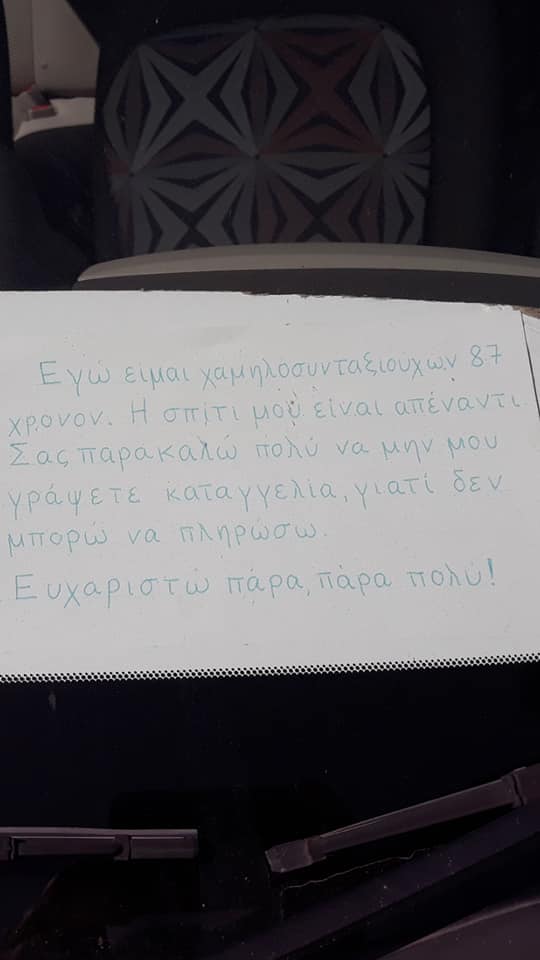 Εγώ ειμαι χαμηλοσυνταξιούχων 87
χρονον. Η σπίτι μου είναι απέναντι
Σας παρακαλώ πολύ να μην μου
γράψετε καταγγελία, γιατί δεν
μπορώ να πληρώσω.
Ευχαριστώ πάρα, πάρα πολύ!